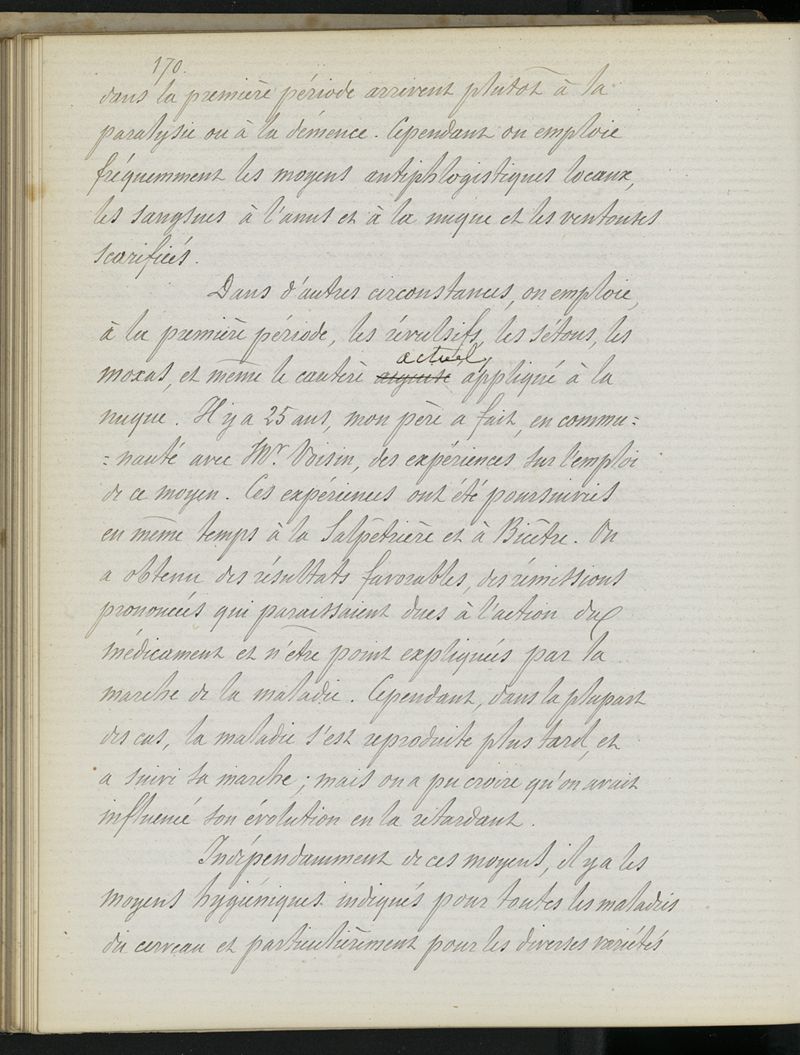 170.
dans la première période arrivent plutôt à la
paralysie ou à la démence. Cependant on emploie
fréquemment les moyens antiphlogistiques locaux,
les sangsues à l'anus et à la nuque et les ventouses
scarifiés.
Dans d'autres circonstances, on emploie,
à la première période, les révulsifs, les sétons, les
actuel,
moxas, et même le cautère appliqué à la
nuque. Il y a 25 ans, mon père a fait, en commu=
=nauté avec Mr. Voisin, des expériences sur l'emploi
de ce moyen. Ces expériences ont été poursuivies
en même temps à la Salpêtrière et à Bicêtre. On
a obtenu des résultats favorables, des rémissions
prononcées qui paraissaient dues à l'action du
médicament et n'être point expliquées par la
marche de la maladie. Cependant, dans la plupart
des cas, la maladie s'est reproduite plus tard, et
a suivi sa marche; mais on a pu croire qu'on avait
influencé son évolution en la retardant.
Indépendamment de ces moyens, il y a les
moyens hygiéniques indiqués pour toutes les maladies
du cerveau et particulièrement pour les diverses variétés